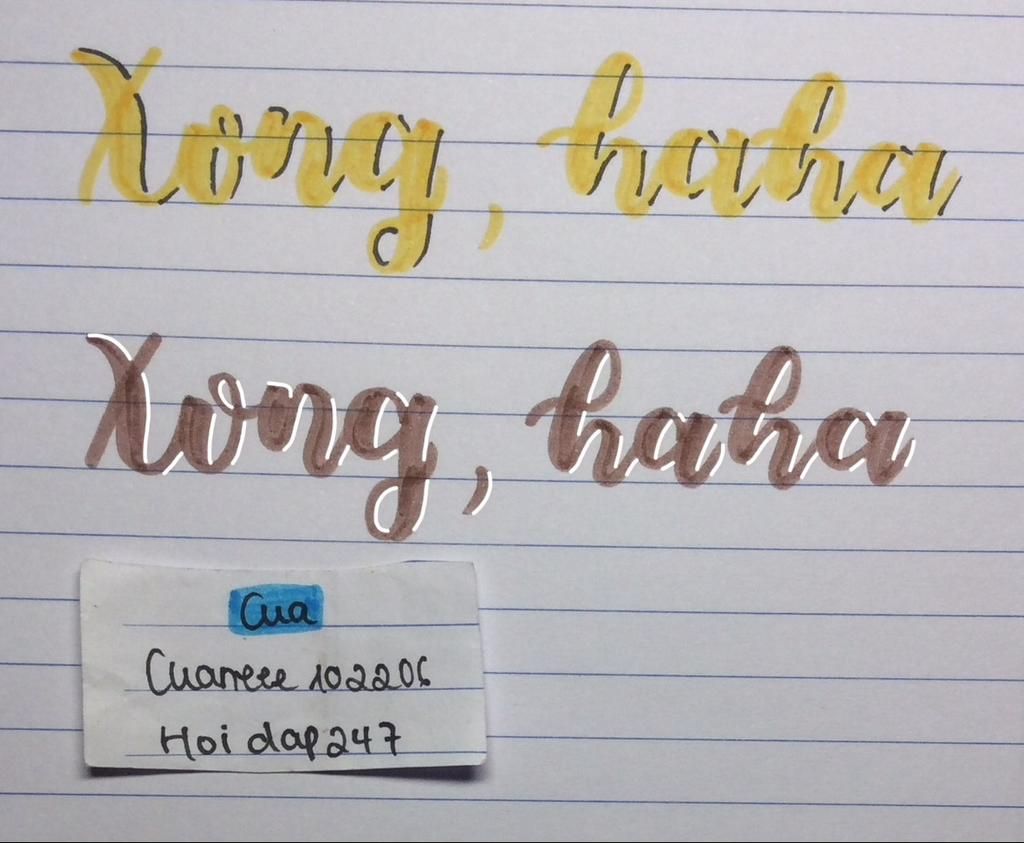 Xong, haha
Xong, haha
Cua
Cuarreee 102206
Hoi dap247